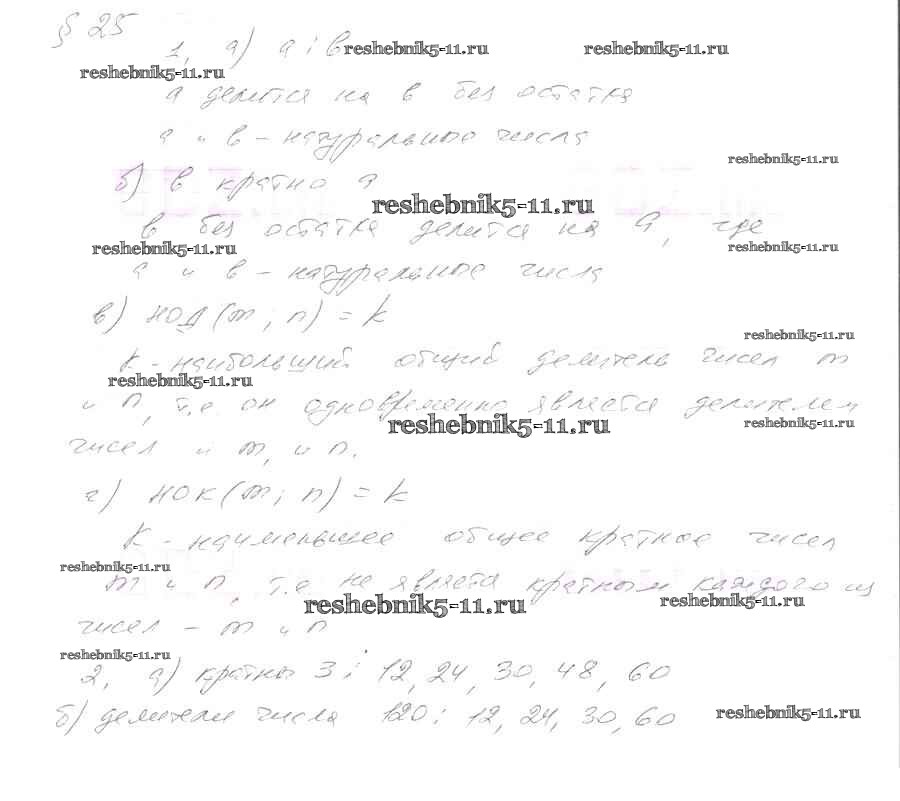 § 25
1, а) а ⋮ в reshebnik5-11.ru reshebnik5-11.ru
reshebnik5-11.ru
а делится на в без остатка
а и в - натуральные числа
reshebnik5-11.ru
б) в кратно а
reshebnik5-11.ru
в без остатка делится на а, где
reshebnik5-11.ru reshebnik5-11.ru
а и в - натуральные числа
в) НОД (m; n) = k
reshebnik5-11.ru
k - наибольший общий делитель чисел m
reshebnik5-11.ru
и n, т.е. он одновременно является делителем
reshebnik5-11.ru reshebnik5-11.ru
чисел и m, и n.
г) НОК (m; n) = k
k - наименьшее общее кратное чисел
reshebnik5-11.ru
m и n, т.е. кратным каждого из
reshebnik5-11.ru reshebnik5-11.ru
чисел - m и n
reshebnik5-11.ru
2, а) кратны 3: 12, 24, 30, 48, 60
б) делители числа 120: 12, 24, 30, 60 reshebnik5-11.ru